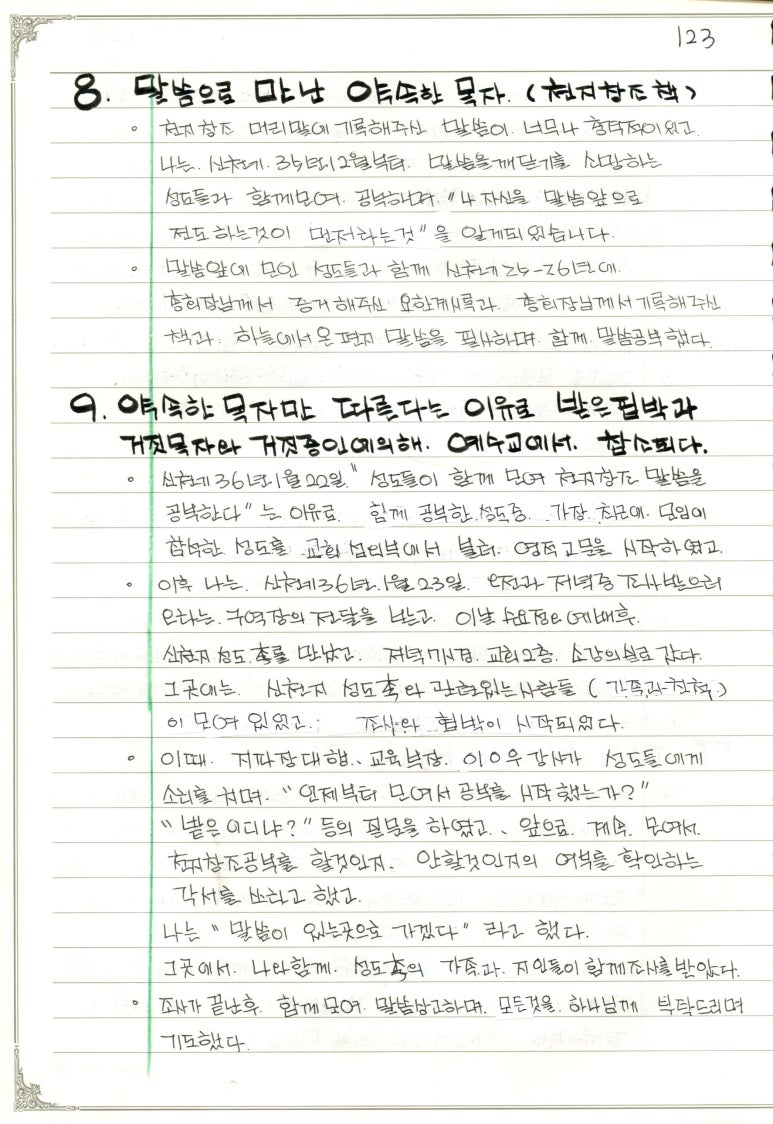 123
8. 말씀으로 만난 약속한 목자. (천지창조 책)
◦ 천지창조 머리말에 기록해주신 말씀이 너무나 충격적이었고.
나는. 신천기. 35년 12월부터. 말씀을 깨닫기를 사랑하는
성도들과 함께모여. 공부하며. "나 자신을 말씀앞으로
전도 하는것이 먼저라는것" 을 알게되었습니다.
◦ 말씀앞에 모인 성도들과 함께 신천기 25-26년에.
총회장님께서 증거해주신 요한계시록과. 총회장님께서 기록해주신
책과. 하늘에서 온 편지 말씀을 필사하며. 함께 말씀공부 했다.
9. 약속한 목자만 따른다는 이유로 받은 핍박과
거짓목자와 거짓증인에의해. 예수교에서. 참소되다.
◦ 신천기 36년 1월 22일. " 성도들이 함께 모여 천지창조 말씀을
공부한다" 는 이유로. 함께 공부한 성도중. 가장 최근에. 모임에
참석한 성도를 교회 섭외부에서 불러. 영적고문을 시작하였고.
◦ 이후 나는. 신천기36년.1월 23일. 오전과 저녁중 조사받으러
오라는. 구역장의 전달을 받고. 이날 수요정오예배후.
신천지 성도.축를 만났고. 저녁 7시경. 교회2층. 소강의실로 갔다.
그곳에는. 신천지 성도축와 관련있는사람들 (가족과친척)
이 모여 있었고.: 조사와 협박이 시작되었다.
◦ 이때. 지파장대행., 교육부장. 이O우강사가 성도들에게
소리를 치며. "언제부터 모여서 공부를 시작했는가?"
"밭은 어디냐?" 등의 질문을 하였고., 앞으로. 계속. 모여서.
천지창조공부를 할것인지. 안할것인지의 여부를 확인하는
각서를 쓰라고 했고.
나는 " 말씀이 있는곳으로 가겠다" 라고 했다.
그곳에서. 나와함께. 성도축의 가족과. 지인들이 함께조사를 받았다.
◦ 조사가 끝난후. 함께모여. 말씀상고하며. 모든것을. 하나님께 부탁드리며
기도했다.